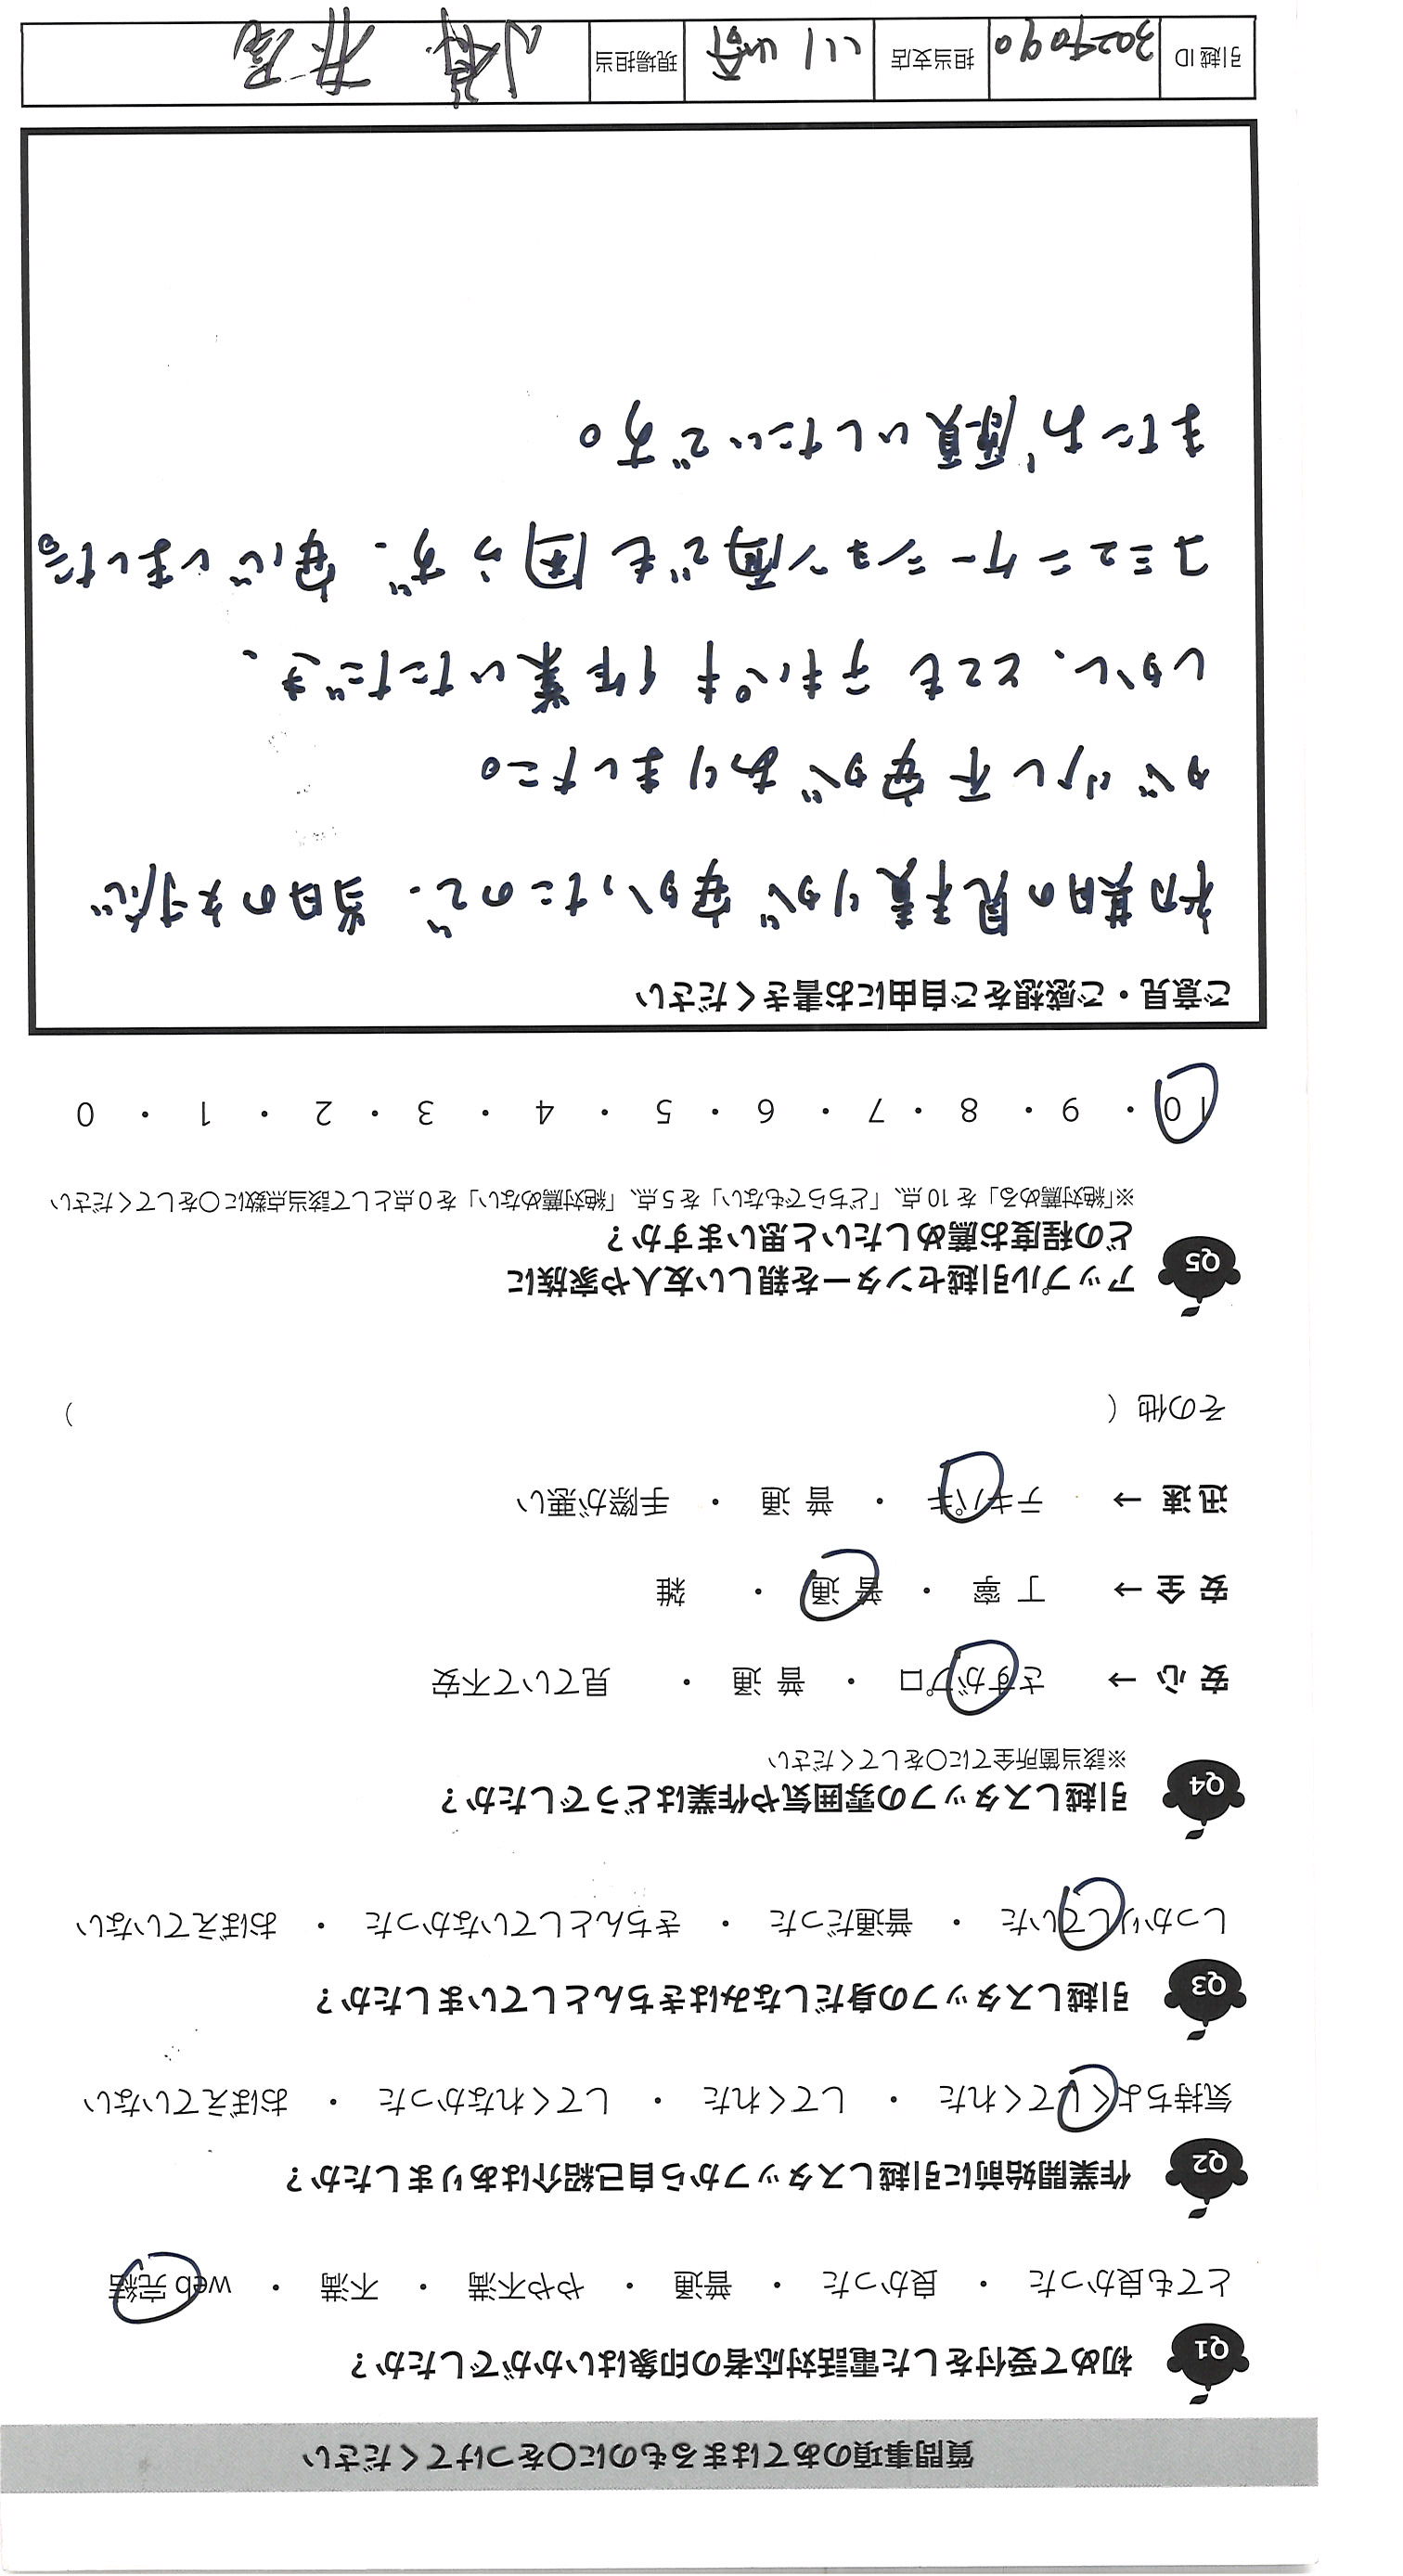 質問事項のあてはまるものに〇をつけてください
Q1 初めて受付をした電話対応者の印象はいかがでしたか？
とても良かった ・ 良かった ・ 普通 ・ やや不満 ・ 不満 ・ web 完結
Q2 作業開始前に引越しスタッフから自己紹介はありましたか？
気持ちよくしてくれた ・ してくれた ・ してくれなかった ・ おぼえていない
Q3 引越しスタッフの身だしなみはきちんとしていましたか？
しっかりしていた ・ 普通だった ・ きちんとしていなかった ・ おぼえていない
Q4 引越しスタッフの雰囲気や作業はどうでしたか？
※該当箇所全てに〇をしてください
安 心 → さすがプロ ・ 普 通 ・ 見ていて不安
安 全 → 丁 寧 ・ 普 通 ・ 雑
迅 速 → テキパキ ・ 普 通 ・ 手際が悪い
その他（ ）
Q5 アップル引越センターを親しい友人や家族に
どの程度お薦めしたいと思いますか？
※「絶対薦める」を 10 点、「どちらでもない」を 5 点、「絶対薦めない」を 0 点として該当点数に〇をしてください
10 ・ 9 ・ 8 ・ 7 ・ 6 ・ 5 ・ 4 ・ 3 ・ 2 ・ 1 ・ 0
ご意見・ご感想をご自由にお書きください
初期の見積りが安かったので、当日の対応
が少し不安がありました。
しかし、とても テキパキ 作業いただき、
コミュニケーション面でも困らず、安心しました。
またお願いしたいです。
引越 ID 3029090 担当支店 川崎 現場担当